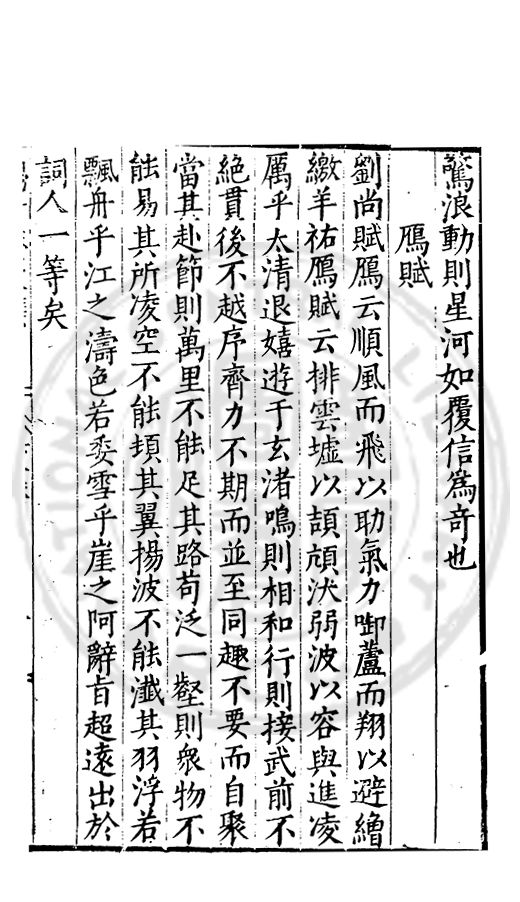 驚浪動則星河如覆信爲奇也
鴈賦
劉尚賦鴈云順風而飛以助氣力啣蘆而翔以避繒
繳羊祜鴈賦云排雲墟以頡頏汱弱波以容與進凌
厲乎太清退嬉遊于玄渚鳴則相和行則接武前不
絶貫後不越序齊力不期而並至同趣不要而自聚
當其赴節則萬里不能足其路苟泛一壑則衆物不
能易其所凌空不能頓其翼揚波不能濺其羽浮若
飄舟乎江之濤色若委雪乎崖之阿辭旨超遠出於
詞人一等矣